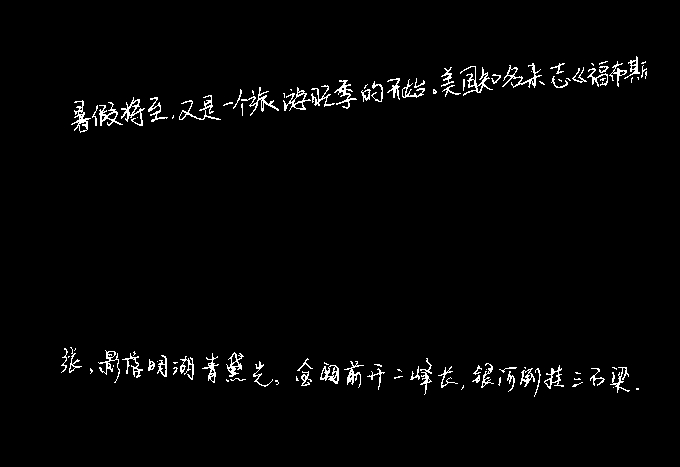 暑假将至,又是一个旅游旺季的开始。美国知名杂志《福布斯
张,影落明湖青黛光。金阙前开二峰长,银河倒挂三石梁.